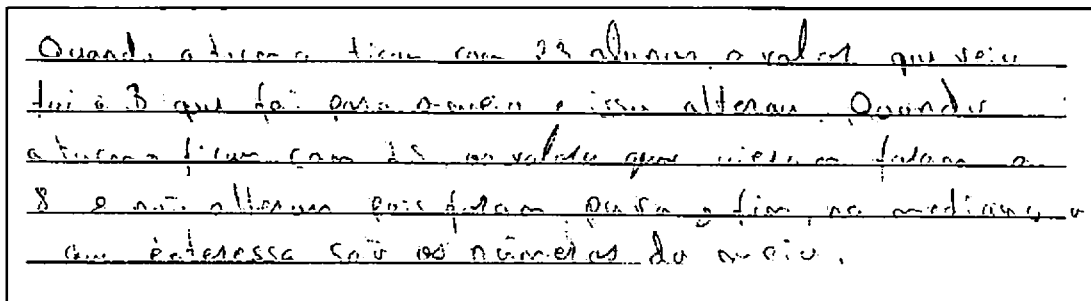 Quando a turma ficou com 23 alunos o valor que veio
foi o 3 que foi para o meio e isso alterou. Quando
a turma ficou com 25 os valores que vieram foram o
8 e não alterou pois foram para o fim, na mediana o
que enteressa são os números do meio.